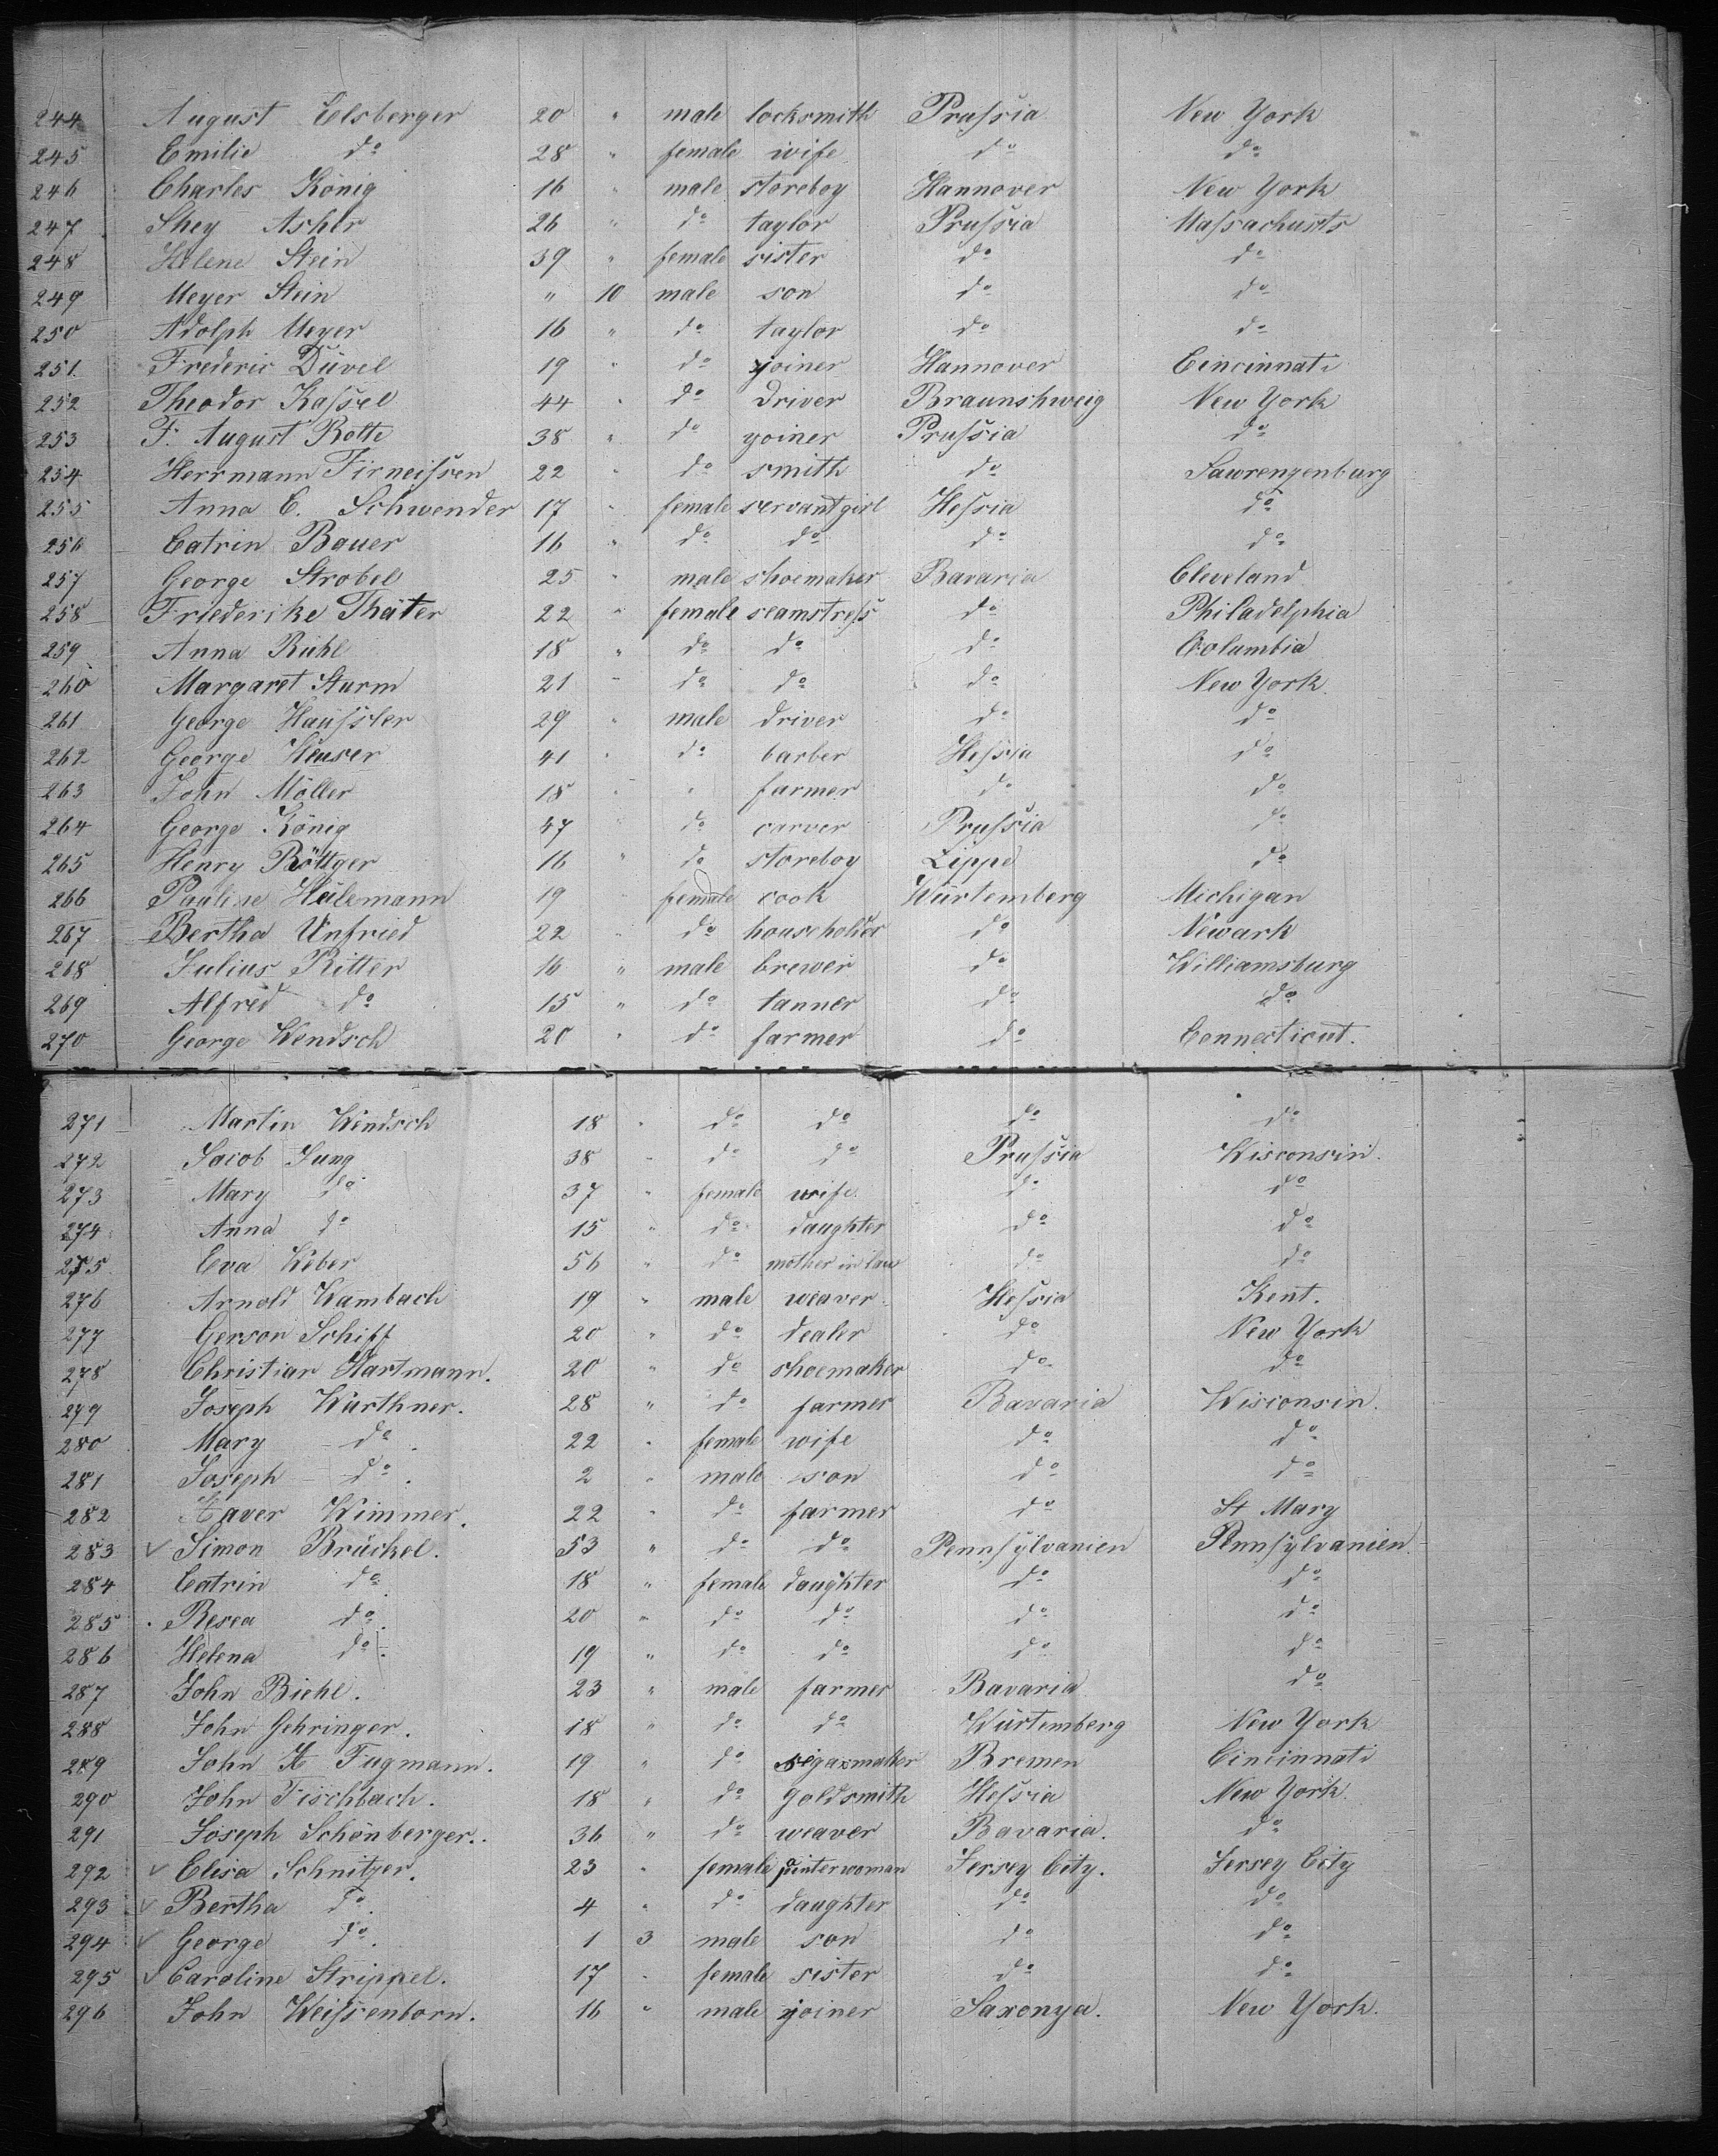 244 August Elsberger 20 " male locksmith Prussia New York
245 Emilie do 28 " female wife do do
246 Charles König 16 " male storeboy Hannover New York
247 Shey Asher 26 " do taylor Prussia Massachusts
248 Helene Stein 39 " female sister do do
249 Meyer Stein " 10 male son do do
250 Adolph Meyer 16 " do taylor do do
251 Frederic Düvel 19 " do joiner Hannover Cincinnati
252 Theodor Kassel 44 " do driver Braunshweig New York
253 F. August Rotte 38 " do yoiner Prussia do
254 Herrmann Firneissen 22 " do smith do Lawrenzenburg
255 Anna C. Schwender 17 " female servantgirl Hessia do
256 Catrin Bauer 16 " do do do do
257 George Strobel 25 " male shoemaker Bavaria Cleveland
258 Friederike Thäter 22 " female seamstress do Philadelphia
259 Anna Rühl 18 " do do do Columbia
260 Margaret Sturm 21 " do do do New York
261 George Haüssler 29 " male driver do do
262 George Heuser 41 " do barber Hessia do
263 John Möller 18 " " farmer do do
264 George König 47 " do carver Prussia do
265 Henry Röttger 16 " do storeboy Lippe do
266 Pauline Heilemann 19 " female cook Würtemberg Michigan
267 Bertha Unfried 22 " do householder do Newark
268 Julius Ritter 16 " male brewer do Williamsburg
269 Alfred do 15 " do tanner do do
270 George Wendsch 20 " do farmer do Connecticut.
271 Martin Wendsch 18 " do do do do
272 Jacob Jung 38 " do do Prussia Wisconsin.
273 Mary do 37 " female wife do do
274 Anna do 15 " do daughter do do
275 Eva Weber 56 " do mother in law do do
276 Arnold Wambach 19 " male weaver Hessia Kent.
277 Gerson Schiff 20 " do dealer do New York
278 Christian Hartmann. 20 " do shoemaker do do
279 Joseph Würthner. 28 " do farmer Bavaria Wisconsin.
280 Mary do. 22 " female wife do do
281 Joseph do. 2 " male son do do
282 Xaver Wimmer. 22 " do farmer do St Mary
283 √ Simon Brückel. 53 " do do Pennsylvanien Pennsylvanien
284 Catrin do. 18 " female daughter do do
285 Resea do. 20 " do do do do
286 Helena do. 19 " do do do do
287 John Biehl. 23 " male farmer Bavaria do
288 John Gehringer. 18 " do do Würtemberg New York
289 John Fugmann. 19 " do segarmaker Bremen Cincinnati
290 John Fischbach. 18 " do goldsmith Hessia New York.
291 Joseph Schönberger. 36 " do weaver Bavaria. do
292 √ Elisa Schnitzer. 23 " female Jersey City. Jersey City
293 √ Bertha do. 4 " do daughter do do
294 √ George do. 1 3 male son do do
295 √ Caroline Strippel. 17 " female sister do do
296 John Weissenborn. 16 " male yoiner Saxonya. New York.